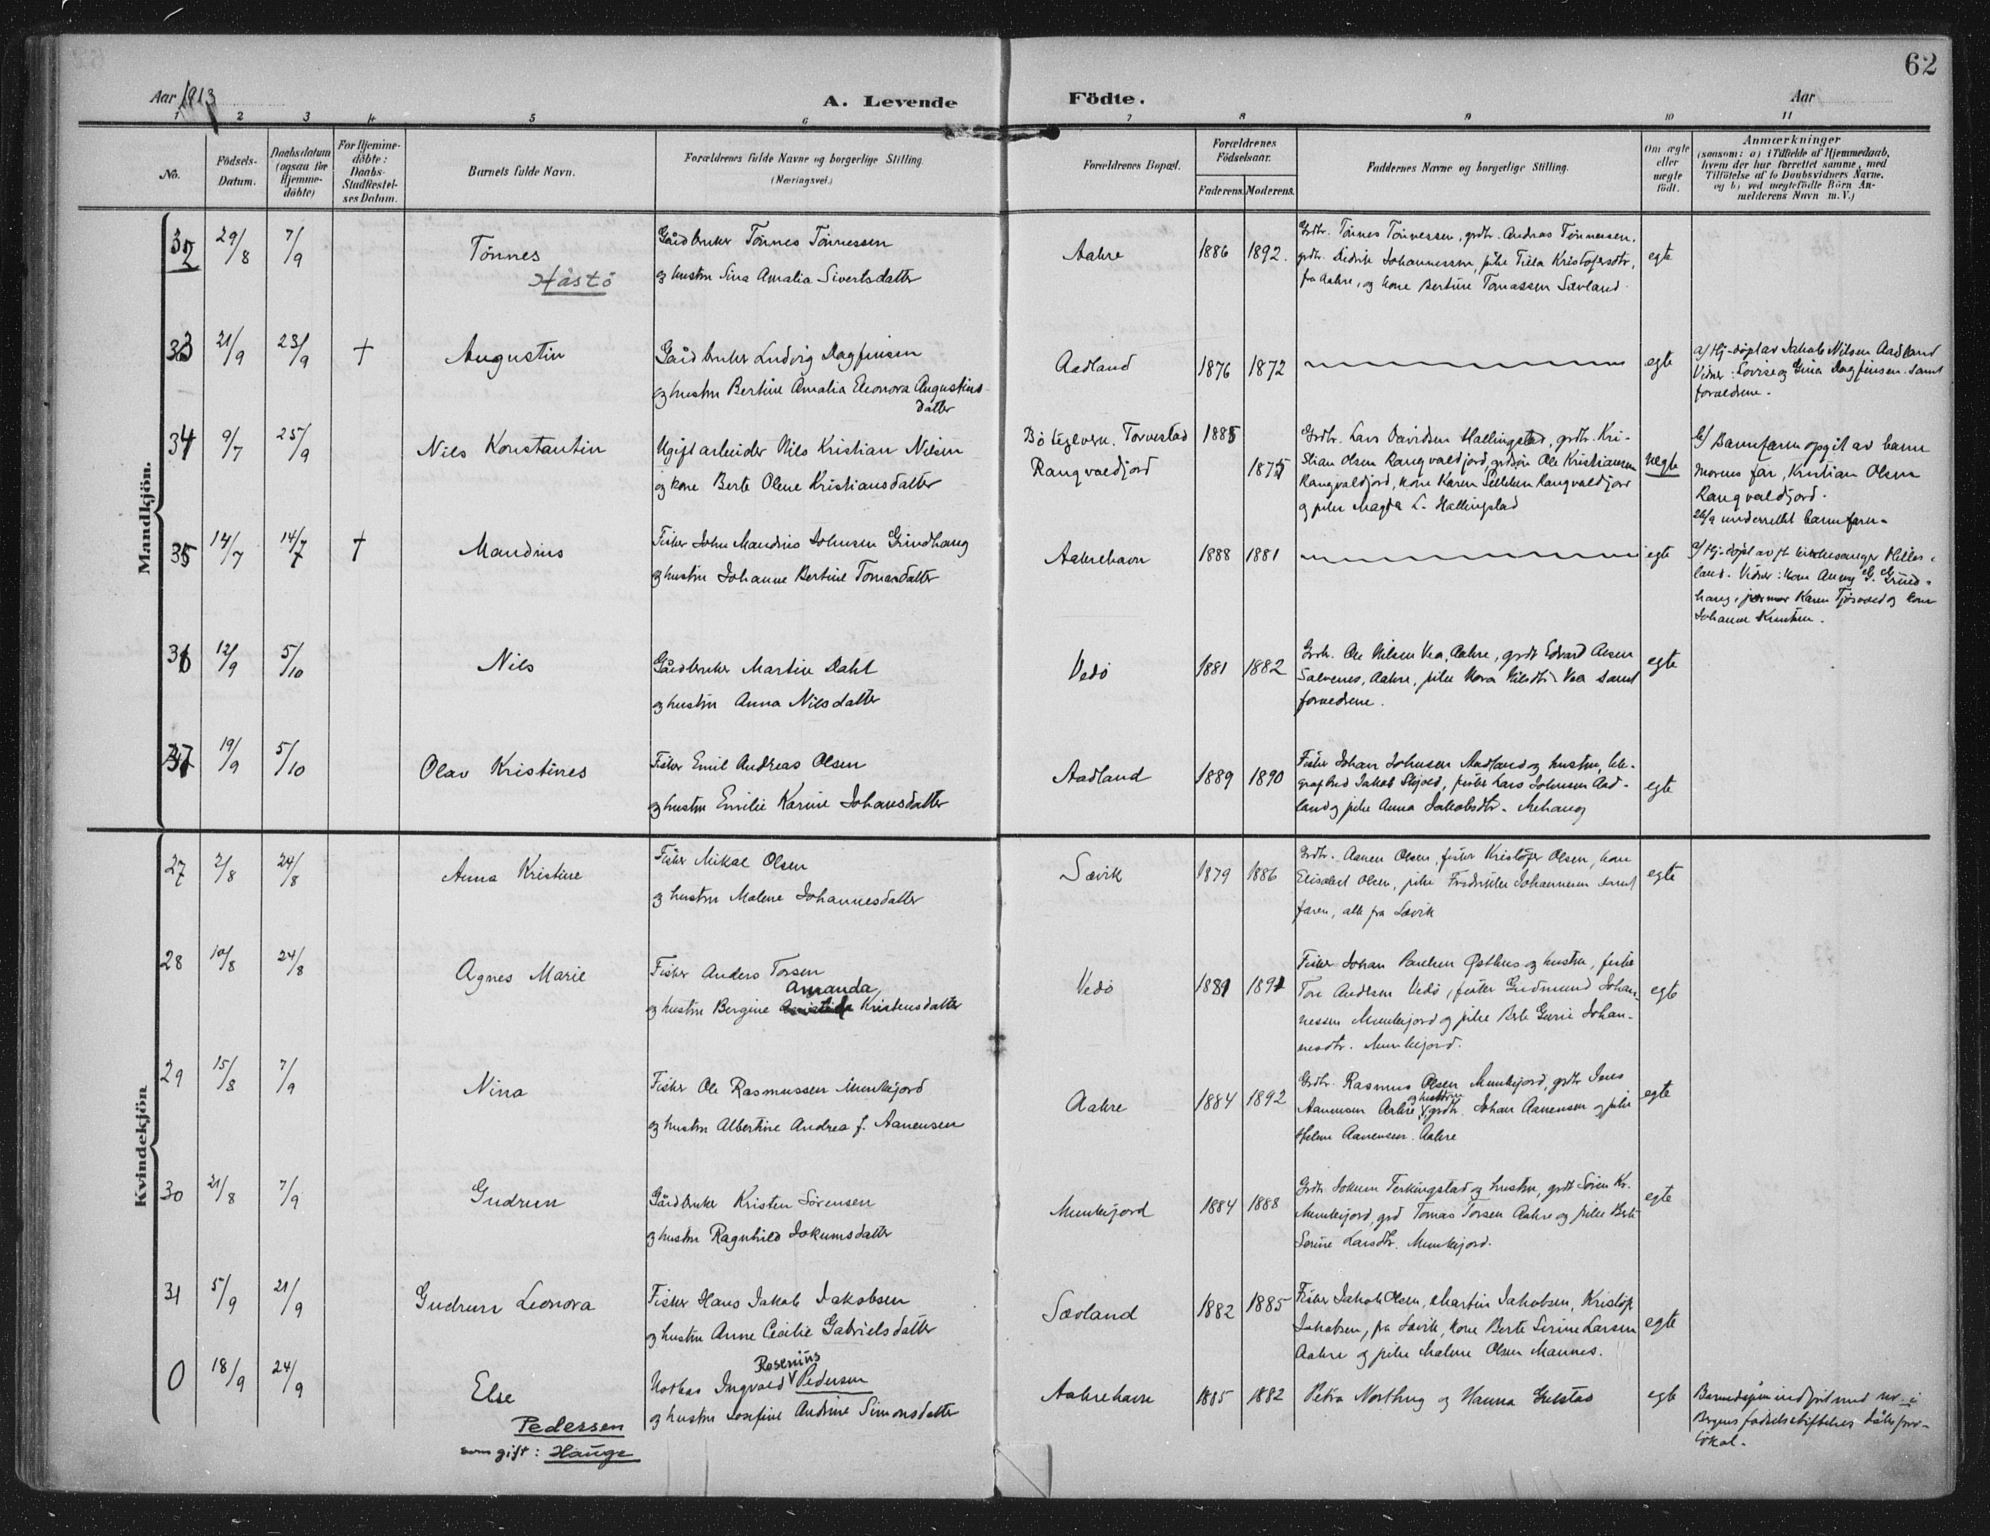 62
Aar 1913
A. Levende Födte.
Aar
1 2 3 4 5 6 7 8 9 10 11
No.
Födsels-Datum.
Daabsdatum (ogsaa for Hjemme-döbte)
For Hjemme-döbte: Daabs-Stadfæstel-ses Datum.
Barnets fulde Navn.
Forældrenes fulde Navne og borgerlige Stilling. (Næringsvei.)
Forældrenes Bopæl.
Forældrenes Födselsaar.
Faderens. Moderens.
Faddernes Navne og borgerlige Stilling.
Om ægte eller uægte födt.
Anmærkninger
(saasom: a) i Tilfælde af Hjemmedaab,
hvem der har forrettet samme, med
Tilföielse af to Daabsvidners Navne,
og b) ved uægtefödte Börn An-
melderens Navn m. V.)
Mandkjön.
32 29/8 7/9 Tönnes Håstö
Gårdbruker Tönnes Tönnessen
og hustru Sina Amalia Sivertsdatter
Aakre 1886 1892.
Grdbr. Tönnes Tönnessen, grdbr. Andreas Tönnessen,
grdbr. Didrik Johannessen, pike Tilla Kristofersdtr,
fra Aakre, og kone Bertine Tomassen Sævland.
egte
33 21/9 23/9 + Augustin
Gårdbruker Ludvig Dagfinsen
og hustru Bertine Amalia Eleonora Augustins-
datter
Aadland 1876 1872
egte
a/ Hj-döpt av Jakob Nilsen Aadland
Vidner: Lovise og Gina Dagfinsen samt
forældrene.
34 9/7 25/9 Nils Konstantin
Ugift arbeider Nils Kristian Nilsen
og kone Berte Olene Kristiansdatter
Bö teglverk. Torvestad 1885
Rangvaldjord 1875
Grdbr. Lars Davidsen Hallingstad, grdbr. Kri-
stian Olsen Rangvaldjord, grdsön Ole Kristiansen
Rangvaldjord, kone Karen Rangvaldjord
og pike Magda L. Hallingstad
uegte
b/ Barnefaren opgit av barne
mornes far, Kristian Olsen
Rangvaldjord.
26/9 underrettet barnefaren.
35 14/7 14/7 + Mandius
Fisker John Mandius Johnsen Grindhaug
og hustru Johanne Bertine Tomasdatter
Aakrehavn 1888 1881
egte
a/ Hj-döpt av kirkesanger Hilles-
land. Vidner: kone Anny G. Grind-
haug, Karen Tjösvold og kone
Johanne Knutsen.
36 12/9 5/10 Nils
Gårdbruker Martin Dahl
og hustru Anna Nilsdatter
Vedö 1881 1882
Grdb. Ole Nilsen Vea, Aakre, grdb Edvard Olsen
Salvenes, Aakre, pike Nora Nilsdtr Vea samt
forældrene.
egte
37 19/9 5/10 Olav Kristines
Fisker Emil Andreas Olsen
og hustru Emilie Karine Johansdatter
Aadland 1889 1890
Fisker Johan Johnsen Aadland og hustru, tele-
grafbud Jakob Skjold, fisker Lars Johnsen Aad-
land og pike Anna Jakobsdtr.
egte
Kvindekjön
27 2/8 24/8 Anna Kristine
Fisker Mikal Olsen
og hustru Malene Johannesdatter
Sævik 1879 1886
Grdbr. Aanen Olsen, fisker Kristofer Olsen, kone
Elisabet Olsen, pike Fredrikke Johannesen samt
faren, alle fra Sævik
egte
28 10/8 24/8 Agnes Marie
Fisker Anders Torsen
Amanda
og hustru Bergine Kristensdatter
Vedö 1881 1891
Fisker Johan Paulsen Östhus og hustru, fisker
Tore Andersen Vedö, fisker Gudmund Johan-
nessen Munkejord og pike Berte Gurie Johan-
nesdtr. Munkejord.
egte
29 15/8 7/9 Nina
Fisker Ole Rasmussen Munkejord
og hustru Albertine Andrea f. Aanensen
Aakre 1884 1892
Grdbr. Rasmus Olsen Munkejord, grdbr Jens
og hustru
Aanensen Aakre, grdbr. Johan Aanensen og pike
Helene Aanensen. Aakre
egte
30 21/8 7/9 Gudrun
Gårdbruker Kristen Sörensen
og hustru Ragnhild Jokumsdatter
Munkejord 1884 1888
Grdbr. Jokum Ferkingstad og hustru, grdb Sören Kr.
Munkejord, grd Tomas Torsen Aakre og pike Berte
Serine Larsdtr. Munkejord.
egte
31 5/9 21/9 Gudrun Leonora
Fisker Hans Jakob Jakobsen
og hustru Anne Cecilie Gabrielsdatter
Sævland 1882 1885
Fisker Jakob Olsen, Martin Jakobsen, Kristofe
Jakobsen, fra Sævik, kone Berte Serine Larsen
Aakre og pike Malene Olsen Mannes.
egte
0 18/9 24/9 Else
Pedersen
som gift: Hauge
Rosenius
Notbas Ingvald Pedersen
og hustru Josefine Andrine Simonsdatter
Aakrehavn 1885 1882
Petra Northug og Hanna Gulstad
egte
Barnedåpen indfört med nr. i
Bergens födselsstiftelses dåbsproto-
kol.